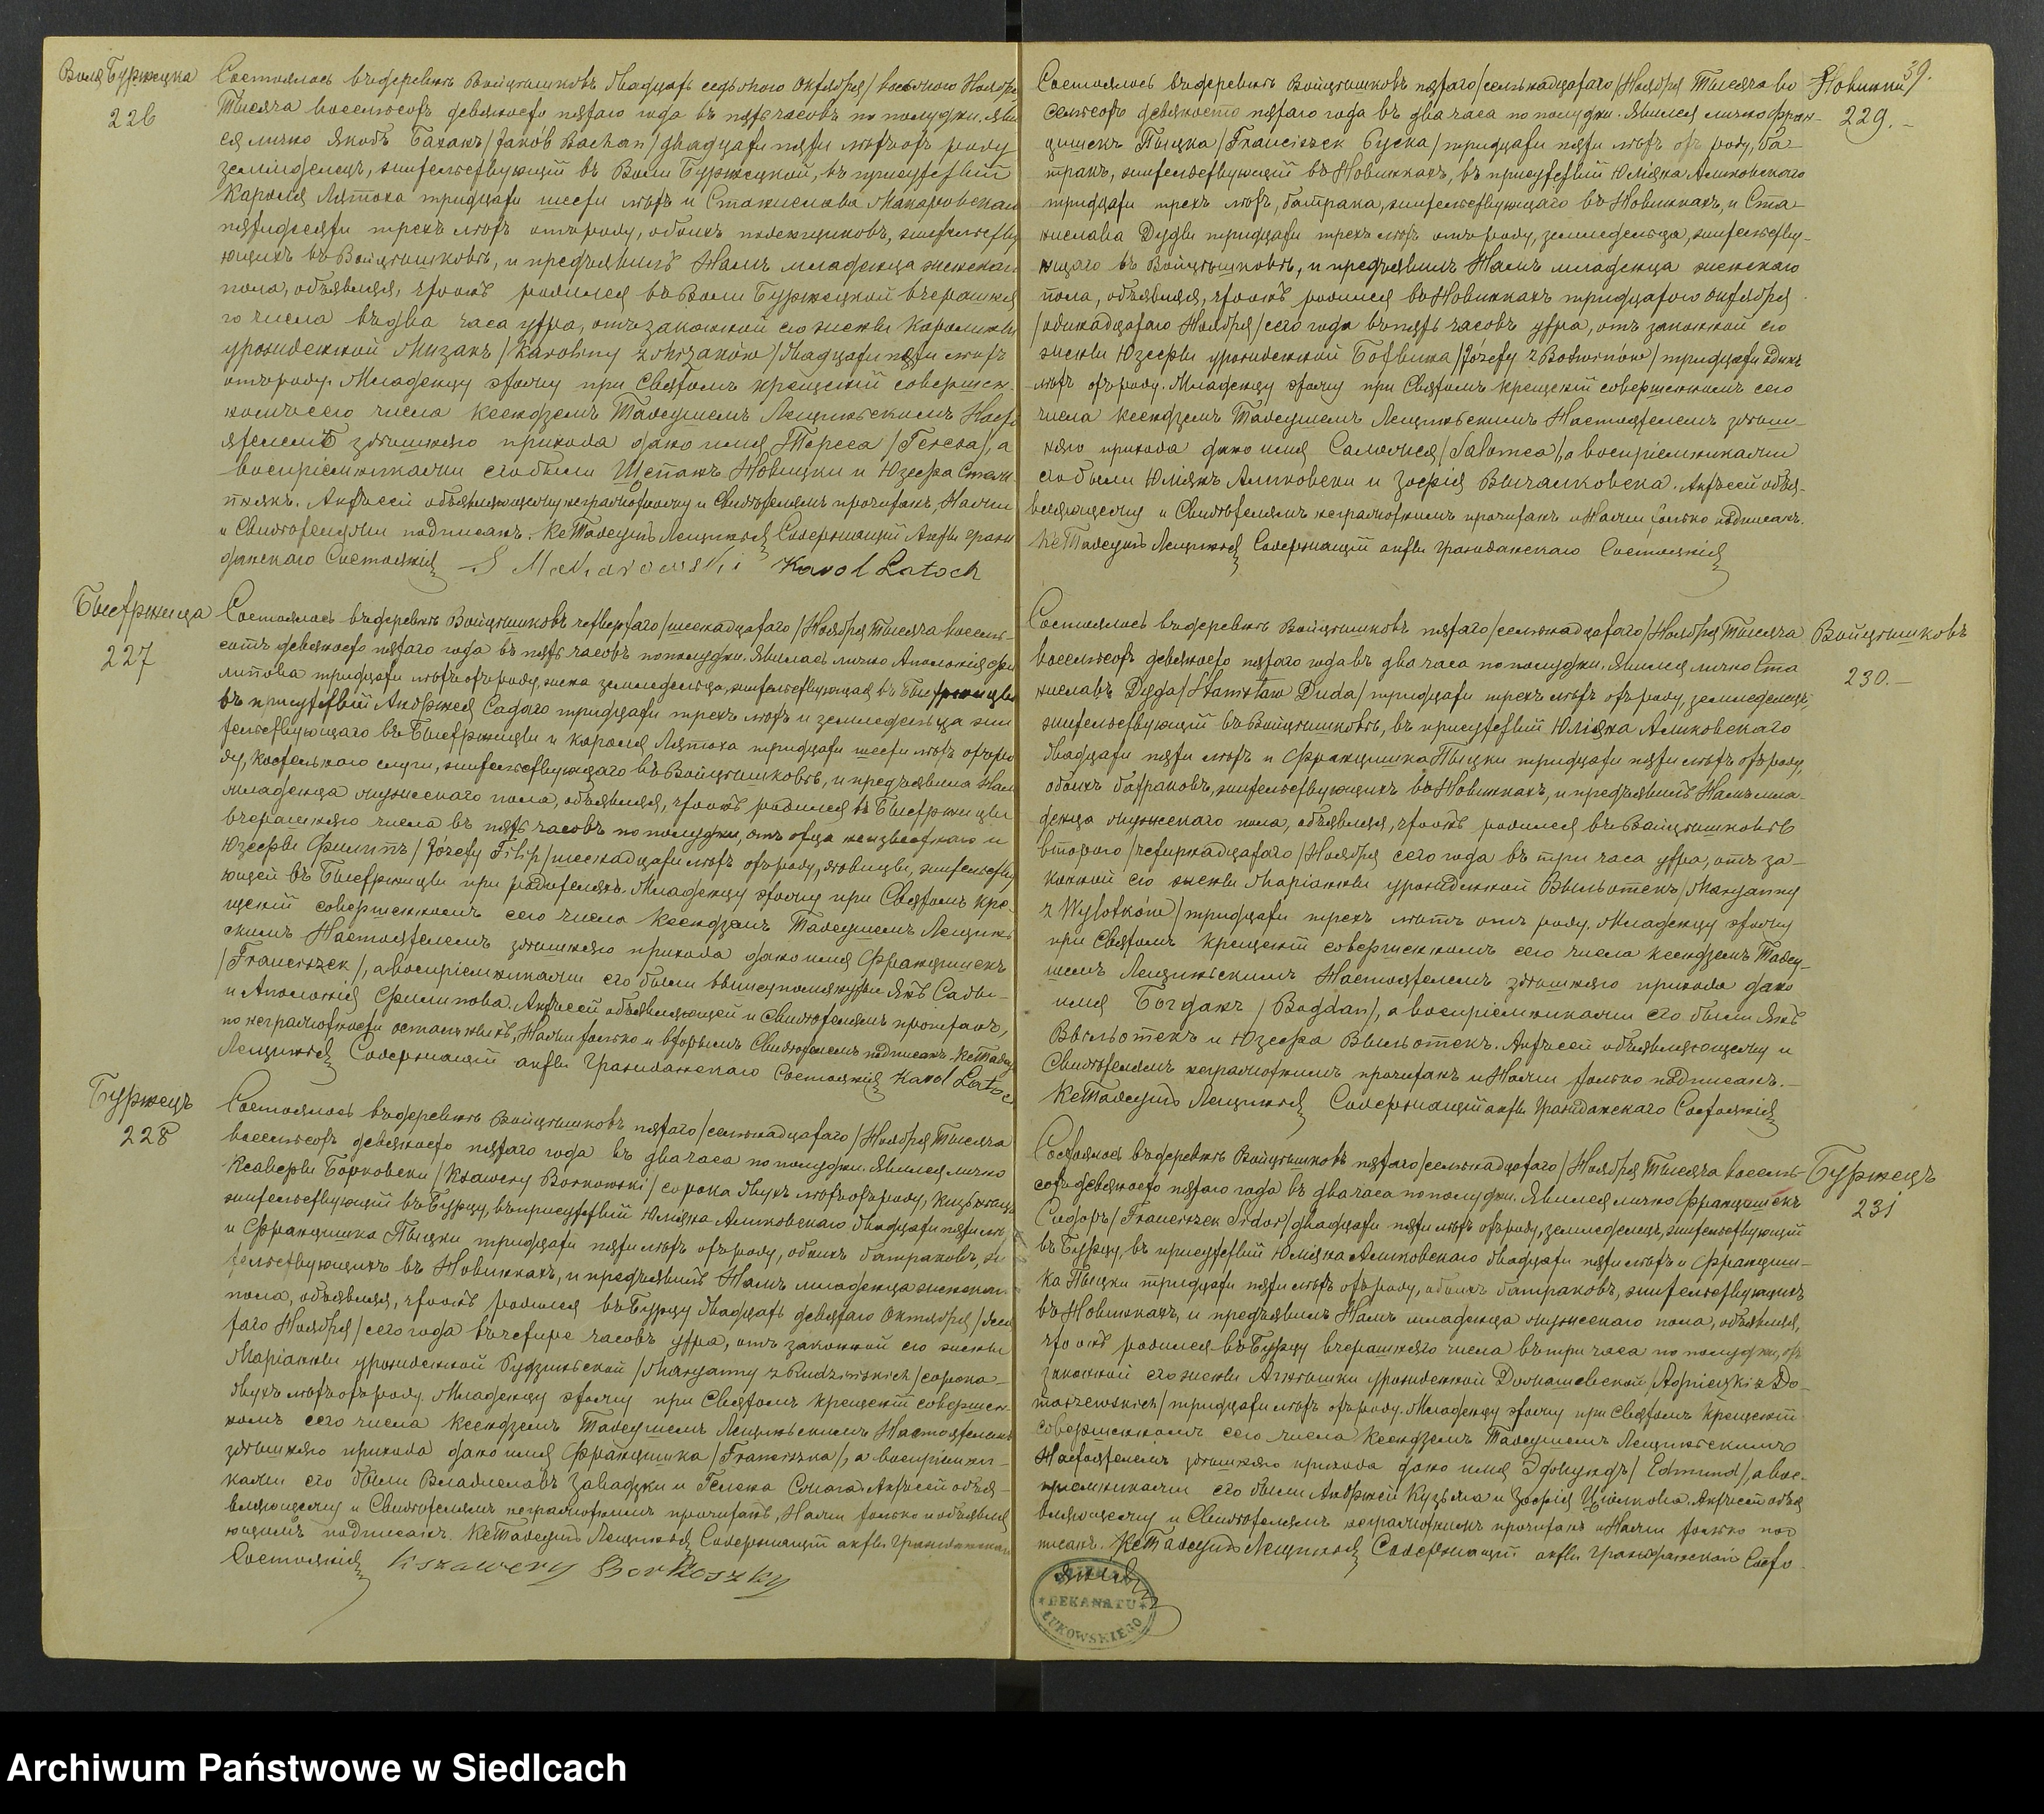 Воля Бужецка
226
Состоялось въ деревнѣ Войцѣшковъ двадцать седьмого Октября /восьмого Ноября/
Тысяча восемьсотъ девяносто пятаго года въ пять часовъ по полудни. Яви
ся лично Якобъ Баханъ /Jakób Bachan/ двадцати пяти лѣтъ отъ роду
земледѣлецъ, жительствующій въ Воли Буржецкой, въ присутствіи
Кароля Лятоха тридцати шести лѣтъ и Станислава Макаровскаго
пятидесяти трехъ лѣтъ отъ роду, обоихъ жительству
ющихъ въ Войцѣшковѣ, и предъявилъ Намъ младенца женскаго
пола, объявляя, что онъ родился въ Воли Буржецкой вчерашня
го числа въ два часа утра, отъ законной его жены Каролины
урожденной Мизакъ /Karoliny z Mizaków/ двадцати пяти лѣтъ
отъ роду. Младенцу этому при Святомъ крещеніи совершен-
номъ сего числа Ксендземъ Тадеушемъ Лещинскимъ Насто
ятелемъ здѣшняго прихода дано имя Тереса /Teresa/, а
воспріемниками его были Щепанъ Новицки и Юзефа
Актъ сей объявляющему неграмотному и Свидѣтелямъ прочитанъ, Нами
и Свидѣтелями подписанъ. Кс Тадеушъ Лещинскій Содержащій Акты граж
данскаго Состоянія S Makarowski Karol Latoch
Быстржица
227
Состоялось въ деревнѣ Войцѣшковъ четвертаго /шестнадцатаго/ Ноября Тысяча восемь-
сотъ девяносто пятаго года въ пять часовъ по полудни. Явилась лично Аполонія Фи
липова тридцати лѣтъ отъ роду, жена земледѣльца, жительствующая въ Быстржицы
въ присутствіи Андржея Садаго тридцати трехъ лѣтъ и земледѣльца жи
тельствующаго въ Быстржицы и Кароля Лятоха тридцати шести лѣтъ отъ ро
ду, костельнаго слуги, жительствующаго въ Войцѣшковѣ, и предъявила Намъ
младенца мужескаго пола, объявляя, что онъ родился въ Быстржицы
вчерашняго числа въ пять часовъ по полудни, отъ отца неизвѣстнаго и
Юзефы Филипъ /Józefy Filip/ шестнадцати лѣтъ отъ роду, дѣвицы, жительству
ющей въ Быстржицы при родителяхъ. Младенцу этому при Святомъ кре-
щеніи совершенномъ сего числа Ксендземъ Тадеушемъ Лещинс
кимъ Настоятелемъ здѣшняго прихода дано имя Францишекъ
/Franciszek/, а воспріемниками его были вышеупомянутые Янъ Сады-
и Аполонія Филипова. Актъ сей объявляющей и Свидѣтелямъ прочитанъ,
по неграмотности остальныхъ, Нами только и вторымъ Свидѣтелемъ подписанъ. Кс Тадеушъ
Лещинскій Содержащій акты Гражданскаго Состоянія Karol Latoch
Буржецъ
228
Состоялось въ деревнѣ Войцѣшковъ пятаго /семнадцатаго/ Ноября Тысяча
восемьсотъ девяносто пятаго года въ два часа по полудни. Явился лично
Ксаверы Борковски /Ksawery Borkowski/ сорока двухъ лѣтъ отъ роду,
жительствующій въ Буржцу, въ присутствіи Юліяна Алиховскаго двадцати пяти лѣ
и Францишка Пыцки тридцати пяти лѣтъ отъ роду, обоихъ батраковъ, жи
тельствующихъ въ Новинкахъ, и предъявилъ Намъ младенца женскаго
пола, объявляя, что онъ родился въ Буржцу двадцать девятаго Октября /деся
таго Ноября/ сего года въ четыре часовъ утра, отъ законной его жены
Маріанны урожденной Будзинской /Maryanny z Budzińskich/ сорока
двухъ лѣтъ отъ роду. Младенцу этому при Святомъ крещеніи совершен-
номъ сего числа Ксендземъ Тадеушемъ Лещинскимъ Настоятелемъ
здѣшняго прихода дано имя Францишка /Franciszka/, а воспріемни-
ками его были Владиславъ Завадзки и Гелена Смага. Актъ сей объя-
вляющему и Свидѣтелямъ неграмотнымъ прочитанъ, Нами только и объявля
ющимъ подписанъ. Кс Тадеушъ Лещинскій Содержащій акты Гражданскаго
Состоянія Kszawery Borkoszky
39.
Новинки
229.
Состоялось въ деревнѣ Войцѣшковъ пятаго /семнадцатаго/ Ноября Тысяча во
семьсотъ девяносто пятаго года въ два часа по полудни. Явился лично Фран-
цишекъ Пыцка /Franciszek Pycka/ тридцати пяти лѣтъ отъ роду, ба-
тракъ, жительствующій въ Новинкахъ, въ присутствіи Юліяна Алиховскаго
тридцати трехъ лѣтъ, батрака, жительствующаго въ Новинкахъ, и Ста-
нислава Дуды тридцати трехъ лѣтъ отъ роду, земледѣльца, жительству-
ющаго въ Войцѣшковѣ, и предъявилъ Намъ младенца женскаго
пола, объявляя, что онъ родился въ Новинкахъ тридцатого Октября
/одинадцатаго Ноября/ сего года въ пять часовъ утра, отъ законной его
жены Юзефы урожденной Ботвина /Józefy z Botwinów/ тридцати одинъ
лѣтъ отъ роду. Младенцу этому при Святомъ крещеніи совершенномъ сего
числа Ксендземъ Тадеушемъ Лещинскимъ Настоятелемъ здѣш-
няго прихода дано имя Саломея /Salomea/, а воспріемниками
его были Юліянъ Алиховски и Зофія Вычалковска. Актъ сей объя-
вляющему и Свидѣтелямъ неграмотнымъ прочитанъ и Нами только подписанъ.
Кс Тадеушъ Лещинскій Содержащій акты Гражданскаго Состоянія
Войцѣшковъ
230.
Состоялось въ деревнѣ Войцѣшковъ пятаго /семнадцатаго/ Ноября Тысяча
восемьсотъ девяносто пятаго года въ два часа по полудни. Явился лично Ста
ниславъ Дуда /Stanisław Duda/ тридцати трехъ лѣтъ отъ роду, земледѣлецъ
жительствующій въ Войцѣшковѣ, въ присутствіи Юліяна Алиховскаго
двадцати пяти лѣтъ и Францишка Пыцки тридцати пяти лѣтъ отъ роду,
обоихъ батраковъ, жительствующихъ въ Новинкахъ, и предъявилъ Намъ мла-
денца мужескаго пола, объявляя, что онъ родился въ Войцѣшковѣ
второго /четырнадцатаго/ Ноября сего года въ три часа утра, отъ за-
конной его жены Маріанны урожденной Выльотекъ /Maryanny
z Wylotków/ тридцати трехъ лѣтъ отъ роду. Младенцу этому
при Святомъ Крещеніи совершенномъ сего числа Ксендземъ Тадеу-
шемъ Лещинскимъ Настоятелемъ здѣшняго прихода дано
имя Богданъ /Bogdan/, а воспріемниками его были Янъ
Выльотекъ и Юзефа Выльотекъ. Актъ сей объявляющему и
Свидѣтелямъ неграмотнымъ прочитанъ и Нами только подписанъ.-
Кс Тадеушъ Лещинскій Содержащій акты Гражданскаго Состоянія
Буржецъ
231
Состоялось въ деревнѣ Войцѣшковъ пятаго /семнадцатаго/ Ноября Тысяча восемь-
сотъ девяносто пятаго года въ два часа по полудни. Явился лично Францишекъ
Сидоръ /Franciszek Sidor/ двадцати пяти лѣтъ отъ роду, земледѣлецъ, жительствующій
въ Буржцу, въ присутствіи Юліяна Алиховскаго двадцати пяти лѣтъ и Францишка
Пыцки тридцати пяти лѣтъ отъ роду, обоихъ батраковъ, жительствующихъ
въ Новинкахъ, и предъявилъ Намъ младенца мужескаго пола, объявляя,
что онъ родился въ Буржцу вчерашняго числа въ три часа по полудни, отъ
законной его жены Агнѣшки урожденной Домашевской /Agnieszki z Do-
maszewskich/ тридцати лѣтъ отъ роду. Младенцу этому при Святомъ Крещеніи
совершенномъ сего числа Ксендземъ Тадеушемъ Лещинскимъ
Настоятелемъ здѣшняго прихода дано имя Эдмундъ /Edmund/, а вос-
пріемниками его были Андржей Кузьма и Зофія Цюлкова. Актъ сей объя
вляющему и Свидѣтелямъ неграмотнымъ прочитанъ и Нами только под
писанъ. Кс Тадеушъ Лещинскій Содержащій акты Гражданскаго Состо
янія
DEKANATU
ŁUKOWSKIEGO
Archiwum Państwowe w Siedlcach